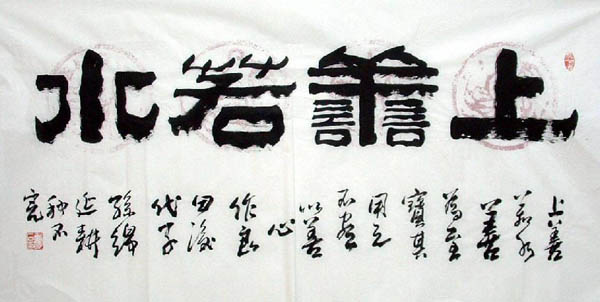 上譱若水
上善
若水
善
為至
寶其
用之
不盡
以善
心
作良
田後
代子
孫綿
延耕
種不
完